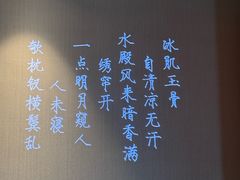 冰肌玉骨
自清凉无汗
水殿风来暗香满
绣帘开
一点明月窥人
人未寝
欹枕钗横鬓乱